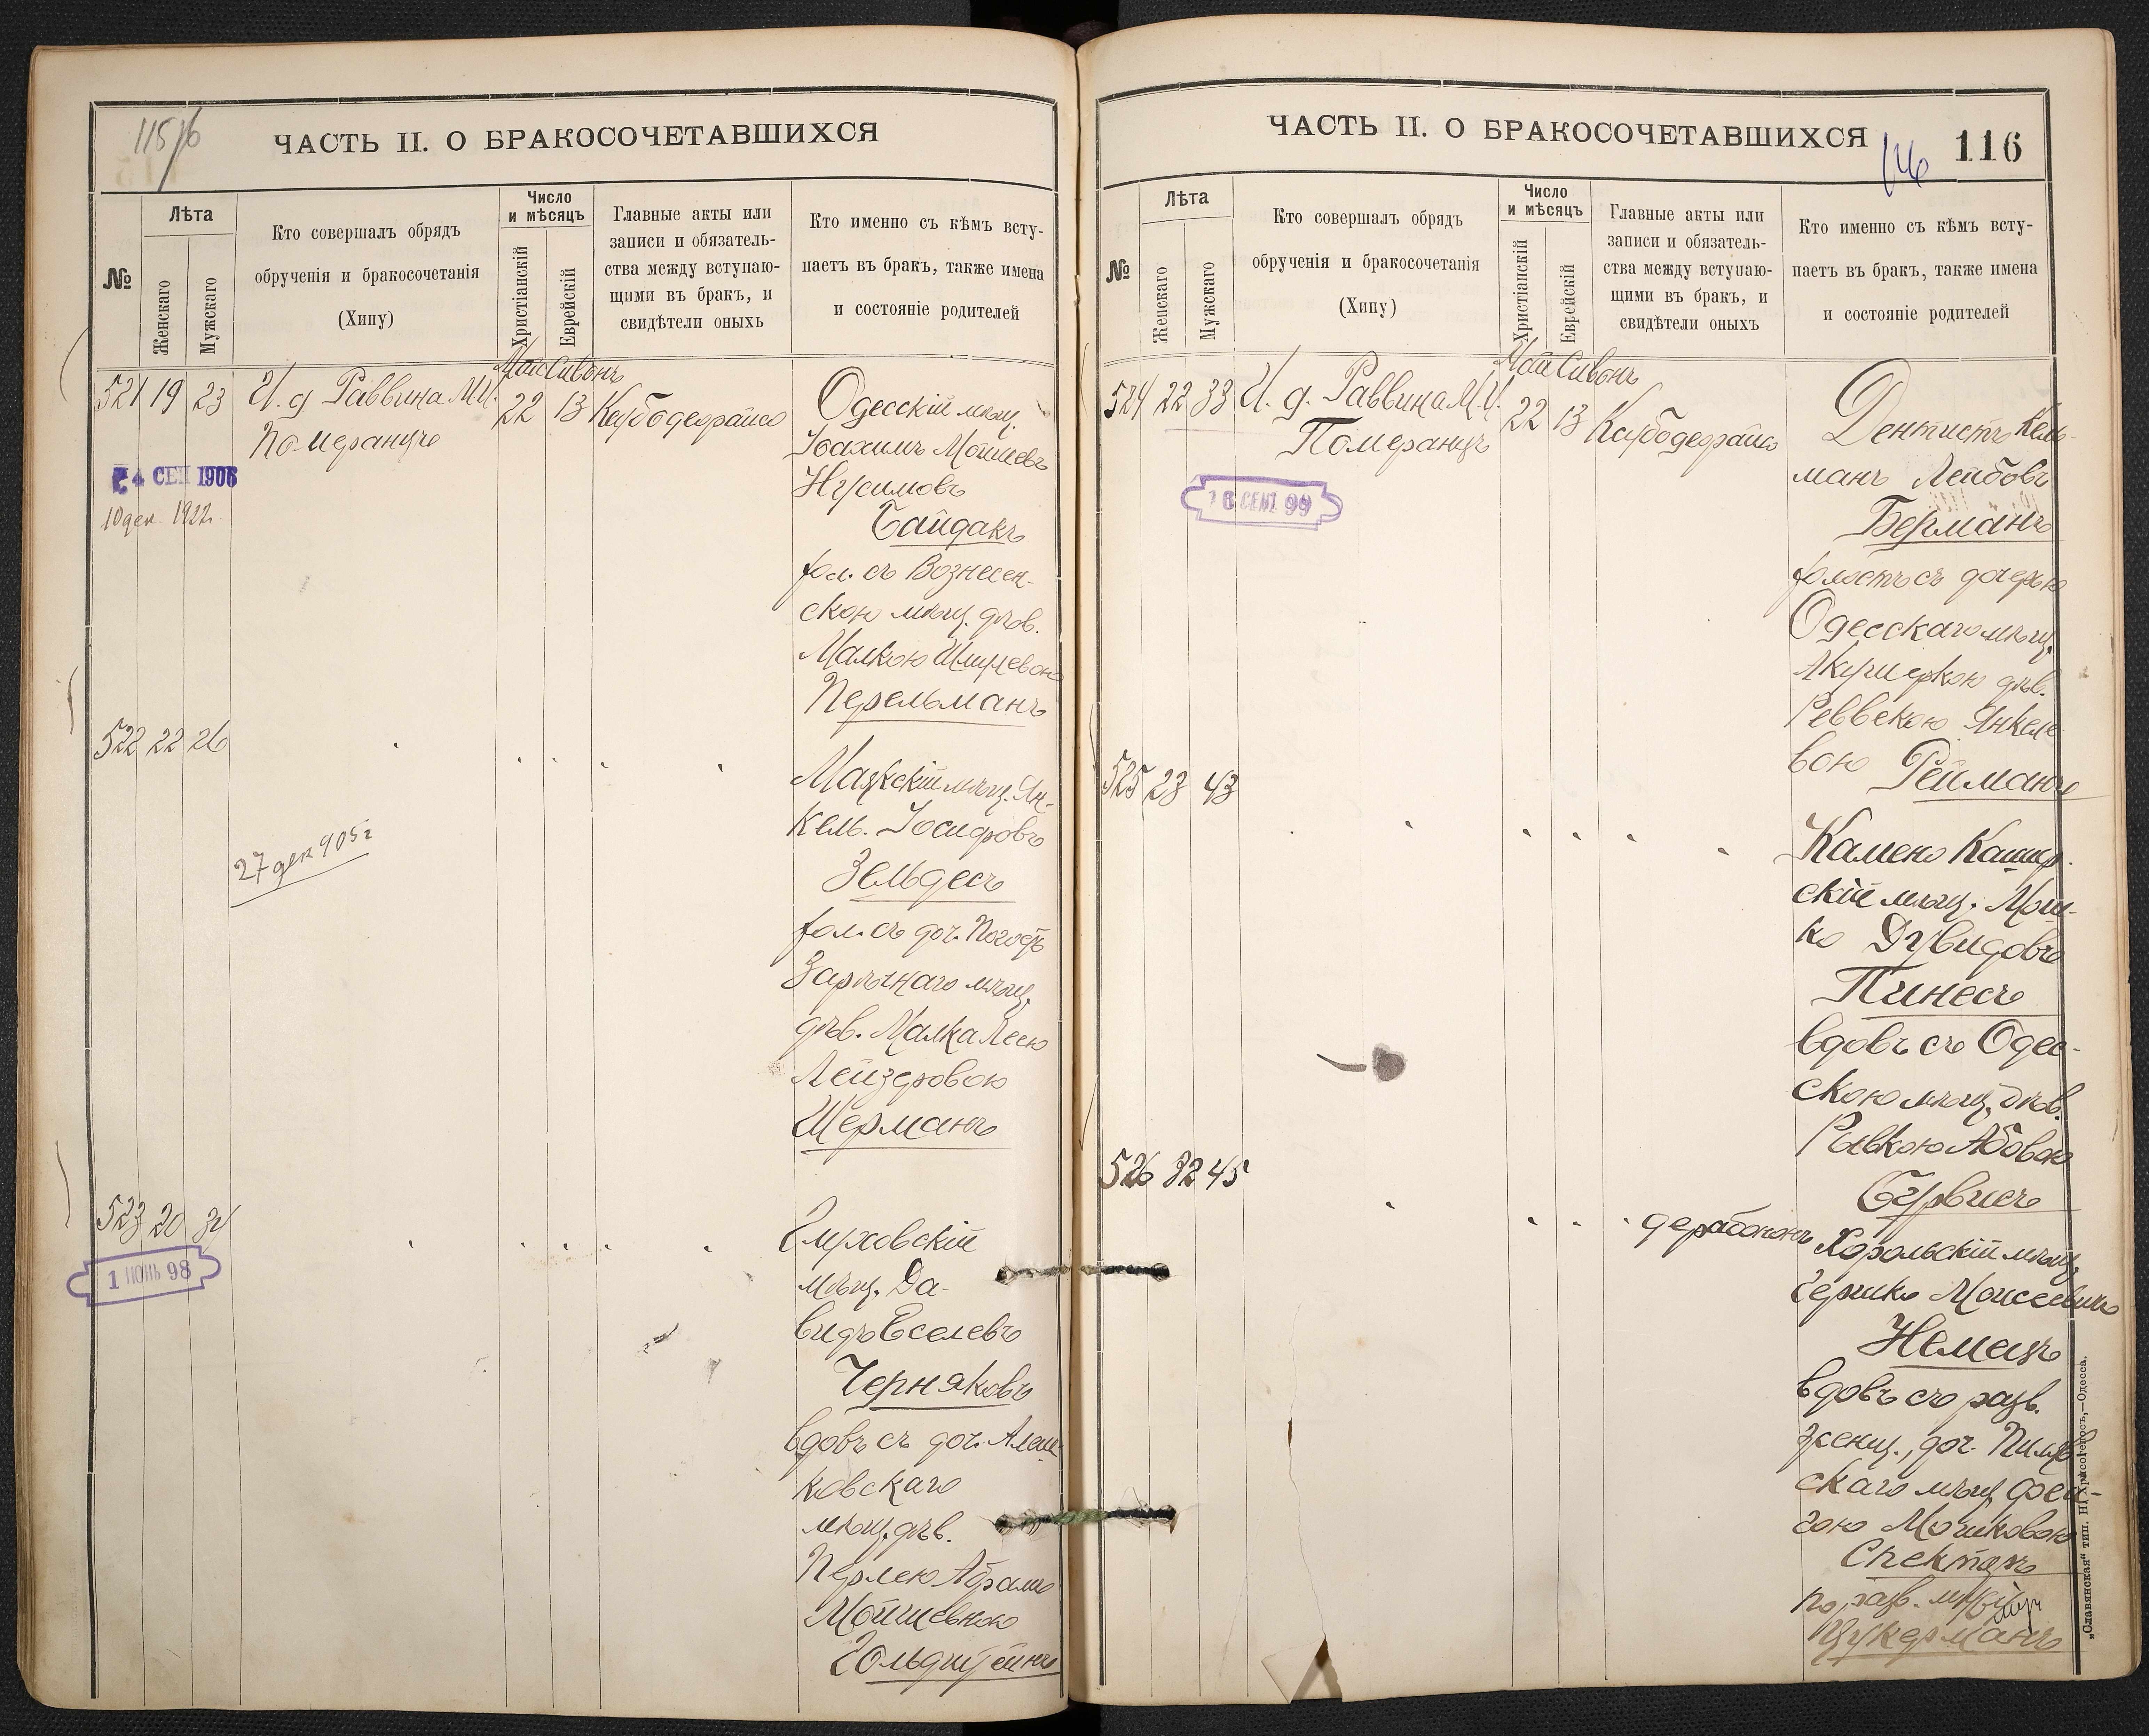 115/б
ЧАСТЬ II. О БРАКОСОЧЕТАВШИХСЯ
№
Лѣта
Женскаго
Мужскаго
Кто совершалъ обрядъ
обрученія и бракосочетанія
(Хипу)
Число
и мѣсяцъ
Христіанскій
Еврейскій
Главные акты или
записи и обязатель-
ства между вступаю-
щими въ бракъ, и
свидѣтели оныхъ
Кто именно съ кѣмъ всту-
паетъ въ бракъ, также имена
и состояніе родителей
Май Сивонъ
521 19 23
И. д Раввина М.И.
Померанцъ
22 13
4 СЕН 1906
10 дек. 1922г.
Одесскій мѣщ.
Іоахимъ Мошиевъ
Нусимовъ
Байдакъ
хол. съ Вознесен-
скою мѣщ. дѣв.
Малкою Шмулевою
Перельманъ
522 22 26
27 дек 905 г
Маякскій мѣщ. Ян-
кель. Іосифовъ
Зельдесъ
хол. съ доч. Погост
Зарѣчнаго мѣщ.
дѣв. Малка Лею
Лейзеровою
Шерманъ
523 20 34
1 ИЮНЬ 98
Глуховскій
мѣщ. Да-
видъ Еселевъ
Черняковъ
вдовъ съ доч. Алеш-
ковскаго
мѣщ. дѣв.
Перлею Абрамъ
Мойшевною
Гольдштейнъ
ЧАСТЬ II. О БРАКОСОЧЕТАВШИХСЯ
116
116
№
Лѣта
Женскаго
Мужскаго
Кто совершалъ обрядъ
обрученія и бракосочетанія
(Хипу)
Число
и мѣсяцъ
Христіанскій
Еврейскій
Главные акты или
записи и обязатель-
ства между вступаю-
щими въ бракъ, и
свидѣтели оныхъ
Кто именно съ кѣмъ всту-
паетъ въ бракъ, также имена
и состояніе родителей
Май Сивонъ
524 22 33
И. д. Раввина М.И.
Померанцъ
22 13
16 СЕНТ 99
Дентистъ Кель-
манъ Лейбовъ
Берманъ
холостъ съ дочерью
Одесскаго мѣщ.
Акушеркою дѣв.
Реввекою Янкеле
вою Рейманъ
525 23 43
Камено Кашир-
скій мѣщ. Мош-
ко Дувидовъ
Пинесъ
вдовъ съ Одес-
скою мѣщ. дѣв.
Рывкою Абовою
Бурвисъ
526 32 45
Хорольскій мѣщ.
Гершко Моисеевичъ
Немецъ
вдовъ съ разв.
женщ., доч.
скаго мѣщ. Фей-
гою Мошковою
Спекторъ
по разв. мужу
Цукерманъ
„Славянская“ тип. Н. Хрисогелосъ,—Одесса.